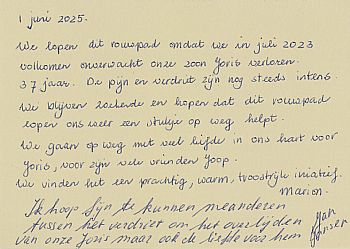 1 juni 2025.
We lopen dit rouwpad omdat we in juli 2023
volkomen onverwacht onze zoon Joris verloren.
37 jaar. De pijn en verdriet zijn nog steeds intens.
We blijven zoekende en hopen dat dit rouwpad
lopen ons weer een stukje op weg helpt.
We gaan op weg met veel liefde in ons hart voor
Joris, voor zijn vele vrienden Joop.
We vinden het een prachtig, warm, troostrijk iniatief.
Marion.
Ik hoop fijn te kunnen meanderen
tussen het verdriet om het overlijden
van onze Joris maar ook de liefde voor hem
Jan
Jansen